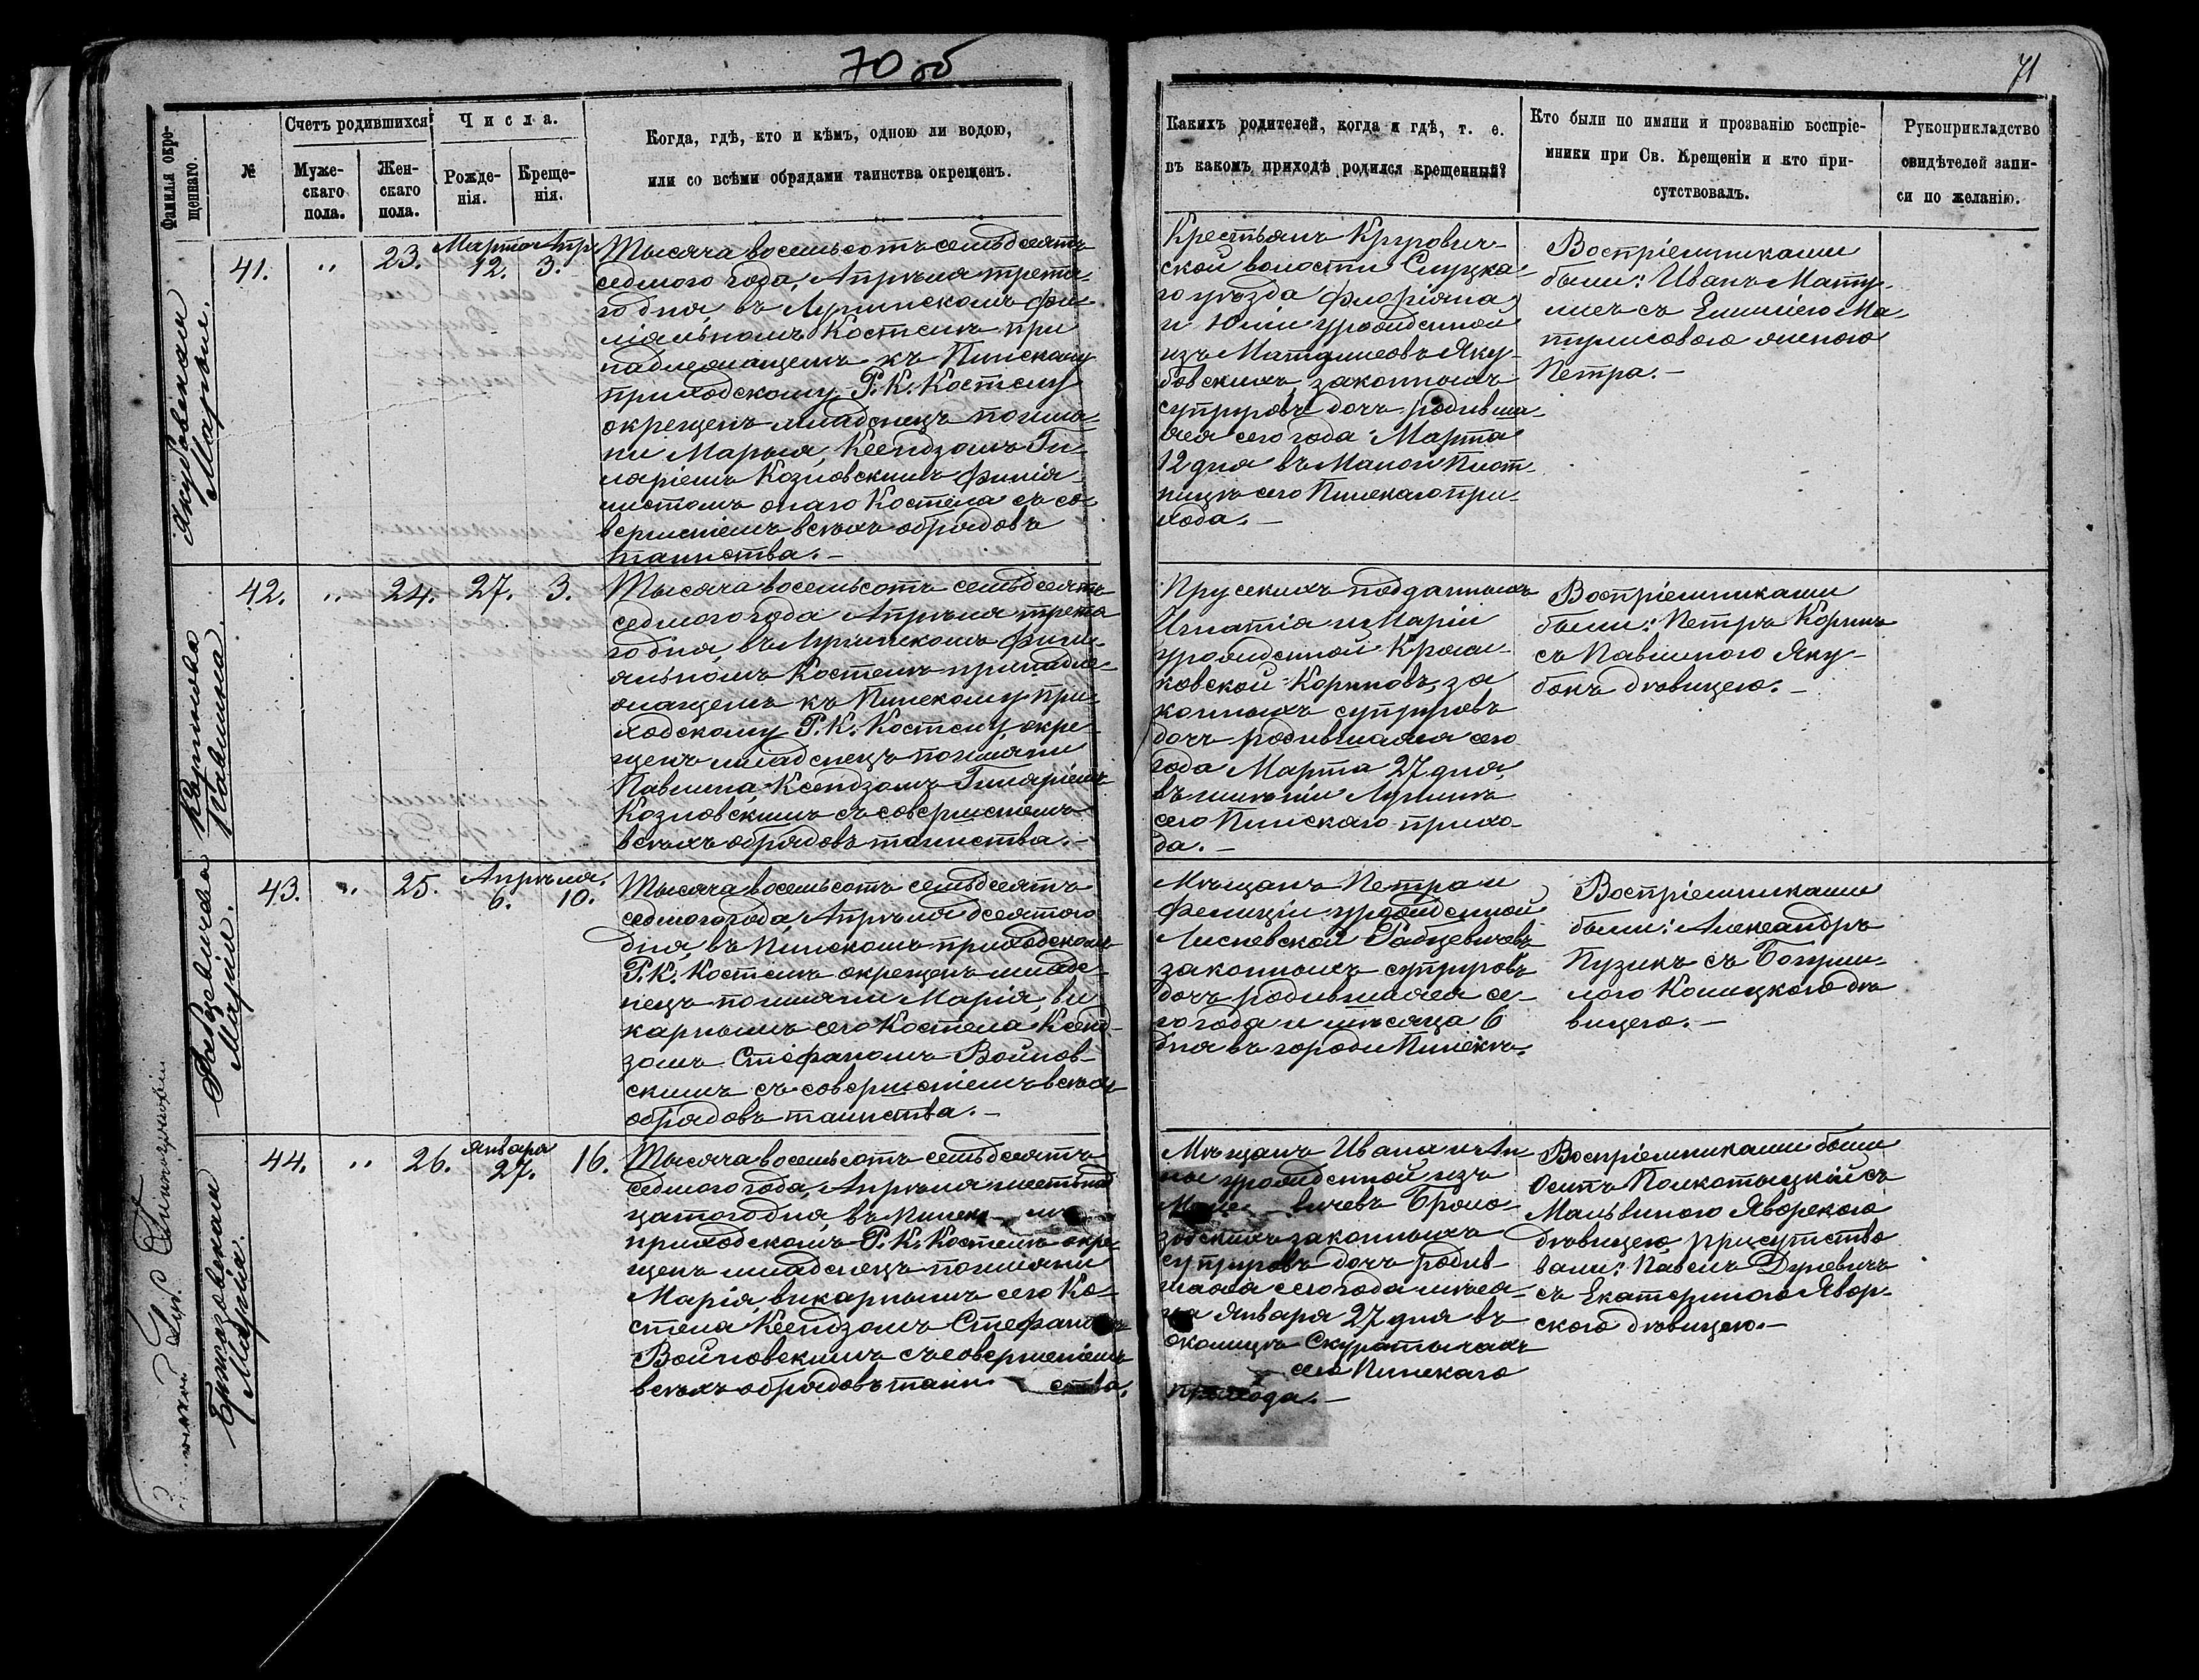 70 об
71
Фамилія окре-
щеннаго.
№
Счетъ родившихся
Муже-
скаго
пола.
Жен-
скаго
пола.
Числа.
Рожде-
нія.
Креще-
нія.
Когда, гдѣ, кто и кѣмъ, одною ли водою,
или со всѣми обрядами таинства окрещенъ.
Какихъ родителей, когда и гдѣ, т. е.
въ какомъ приходѣ родился крещенный?
Кто были по имяни и прозванію воспріе-
мники при Св. Крещеніи и кто при-
сутствовалъ.
Рукоприкладство
свидѣтелей запи-
си по желанію.
Якубовская
Марыя.
41.
"
23.
Марта Апр.
12. 3.
Тысяча восемьсотъ семьдесятъ
седмого года, Апрѣля третя-
го дня, въ Лунинскомъ фи-
ліяльномъ Костелѣ при
надлежащемъ къ Пинскому
приходскому Р. К. Костелу
окрещенъ младенецъ поимя-
ни Марыя, Ксендзомъ Ги-
ляріемъ Козловскимъ филія-
листомъ онаго Костела съ со-
вершеніемъ всѣхъ обрядовъ
таинства.—
Крестьянъ Кругович-
ской волости Слуцка-
го уѣзда Флоріяна
и Юліи урожденной
изъ Матусисовъ Яку-
бовскихъ, законныхъ
супруговъ дочь родивша-
яся сего года Марта
12 дня въ Малой Плот-
ницѣ сего Пинскаго при-
хода.—
Воспріемниками
были: Иванъ Мату-
лисъ съ Емиліею Ма-
тулисовою женою
Петра.—
Корникова
Павлина.
42.
"
24.
27. 3.
Тысяча восемьсотъ семьдесятъ
седмого года Апрѣля третя
го дня, въ Лунинскомъ фили-
яльномъ Костелѣ принадле-
жащемъ къ Пинскому при-
ходскому Р. К. Костелу, окре-
щенъ младенецъ поимяни
Павлина, Ксендзомъ Гиляріемъ
Козловскимъ съ совершеніемъ
всѣхъ обрядовъ таинства.—
Прусскихъ подданныхъ
Игнатія и Маріи
урожденной Краси-
ковской Корниковъ, за
конныхъ супруговъ
дочь родившаяся сего
года Марта 27 дня,
въ имѣніи Лунинѣ
сего Пинскаго прихо-
да.—
Воспріемниками
были: Петръ Корникъ
съ Павлиною Яку-
бокъ дѣвицею.—
Рабцевича
Марія.
43.
"
25.
Апрѣля.
6. 10.
Тысяча восемьсотъ семьдесятъ
седмого года, Апрѣля десятого
дня, въ Пинскомъ приходскомъ
Р. К. Костелѣ окрещенъ младе-
нецъ поимяни Марія, ви
карнымъ сего Костела, Ксенд-
зомъ Стефаномъ Войнов-
скимъ съ совершеніемъ всѣхъ
обрядовъ таинства.—
Мѣщанъ Петра и
Фелиціи урожденной
Лисневской Рабцевичевъ
законныхъ супруговъ
дочь родившаяся се-
го года и мѣсяца 6
дня въ городѣ Пинскѣ.
Воспріемниками
были: Александръ
Пузикъ съ Богуми-
лою Коницкою дѣ
вицею.—
Бржозовская
Марія.
44.
"
26.
Января
27. 16.
Тысяча восемьсотъ семьдесятъ
седмого года, Апрѣля шестнад
цатого дня, въ Пинск
приходскомъ Р. К. Костелѣ окре-
щенъ младенецъ поимяни
Марія, викарнымъ сего Ко-
стела Ксендзомъ Стефаномъ
Войновскимъ съ совершеніемъ
всѣхъ обрядовъ таин ства.
Мѣщанъ Ивана и Ан-
ны урожденной изъ
вичевъ Бржо-
зовскихъ законныхъ
супруговъ дочь родив-
шаяся сего года мѣся-
ца Января 27 дня въ
околицѣ Скуратычахъ
сего Пинскаго
прихода.—
Воспріемниками были
Осипъ Полкотыцкій съ
Мальвиною Яворскою
дѣвицею, присутство
вали: Павелъ Дуневичъ
съ Екатериною Явор-
скою дѣвицею.—